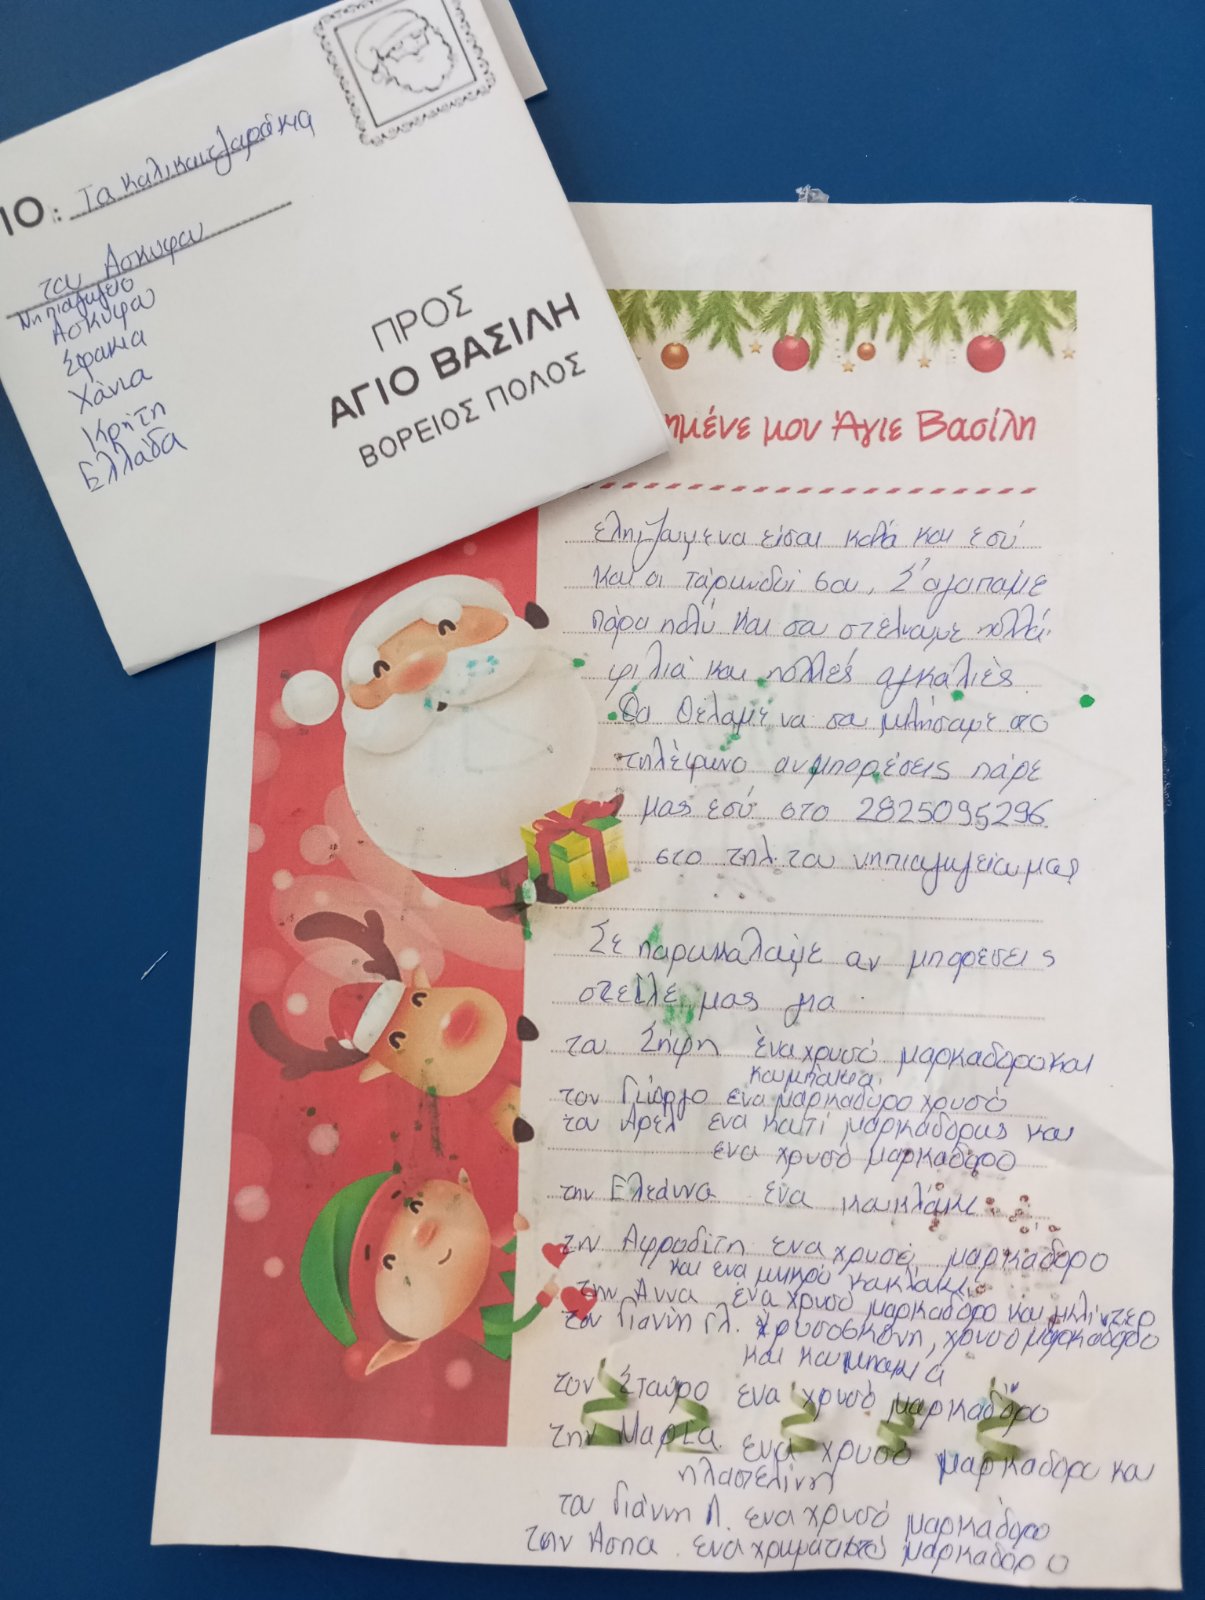 ΙΟ: Τα καλικαντζαράκια
του Ασκύφου
Νηπιαγωγείο
Ασκύφου
Σφακια
Χάνια
Κρήτη
Ελλάδα
ΠΡΟΣ
ΑΓΙΟ ΒΑΣΙΛΗ
ΒΟΡΕΙΟΣ ΠΟΛΟΣ
ημένε μου Άγιε Βασίλη
ελπίζουμε να είσαι καλά και εσύ
και οι τάρανδοί σου, Σ'αγαπάμε
πάρα πολύ και σου στέλνουμε πολλά
φιλιά και πολλές αγκαλιές
Θα θέλαμε να σου μιλήσουμε στο
τηλέφωνο αν μπορέσεις πάρε
μας εσύ στο 2825095296
στο τηλ. του νηπιαγωγείου μας
Σε παρακαλούμε αν μπορέσεις
στείλε μας για
τον Σήφη ένα χρυσό μαρκαδόρο και
καμπάνα
τον Γιώργο ένα μαρκαδόρο χρυσό
τον Άρελ ένα κουτί μαρκαδόρους και
ένα χρυσό μαρκαδόρο
την Ελεάννα ένα κουκλάκι
την Αφροδίτη ένα χρυσό μαρκαδόρο
και ένα μικρό κουκλάκι
την Άννα ένα χρυσό μαρκαδόρο και γκλίτερ
τον Γιάννη Γλ. χρυσόσκονη, χρυσό μαρκαδόρο
και καμπάνα
τον Σταύρο ένα χρυσό μαρκαδόρο
την Μάρτα ένα χρυσό μαρκαδόρο και
πλαστελίνη
τον Γιάννη Λ. ένα χρυσό μαρκαδόρο
την Άσπα ένα χρωματιστό μαρκαδόρο